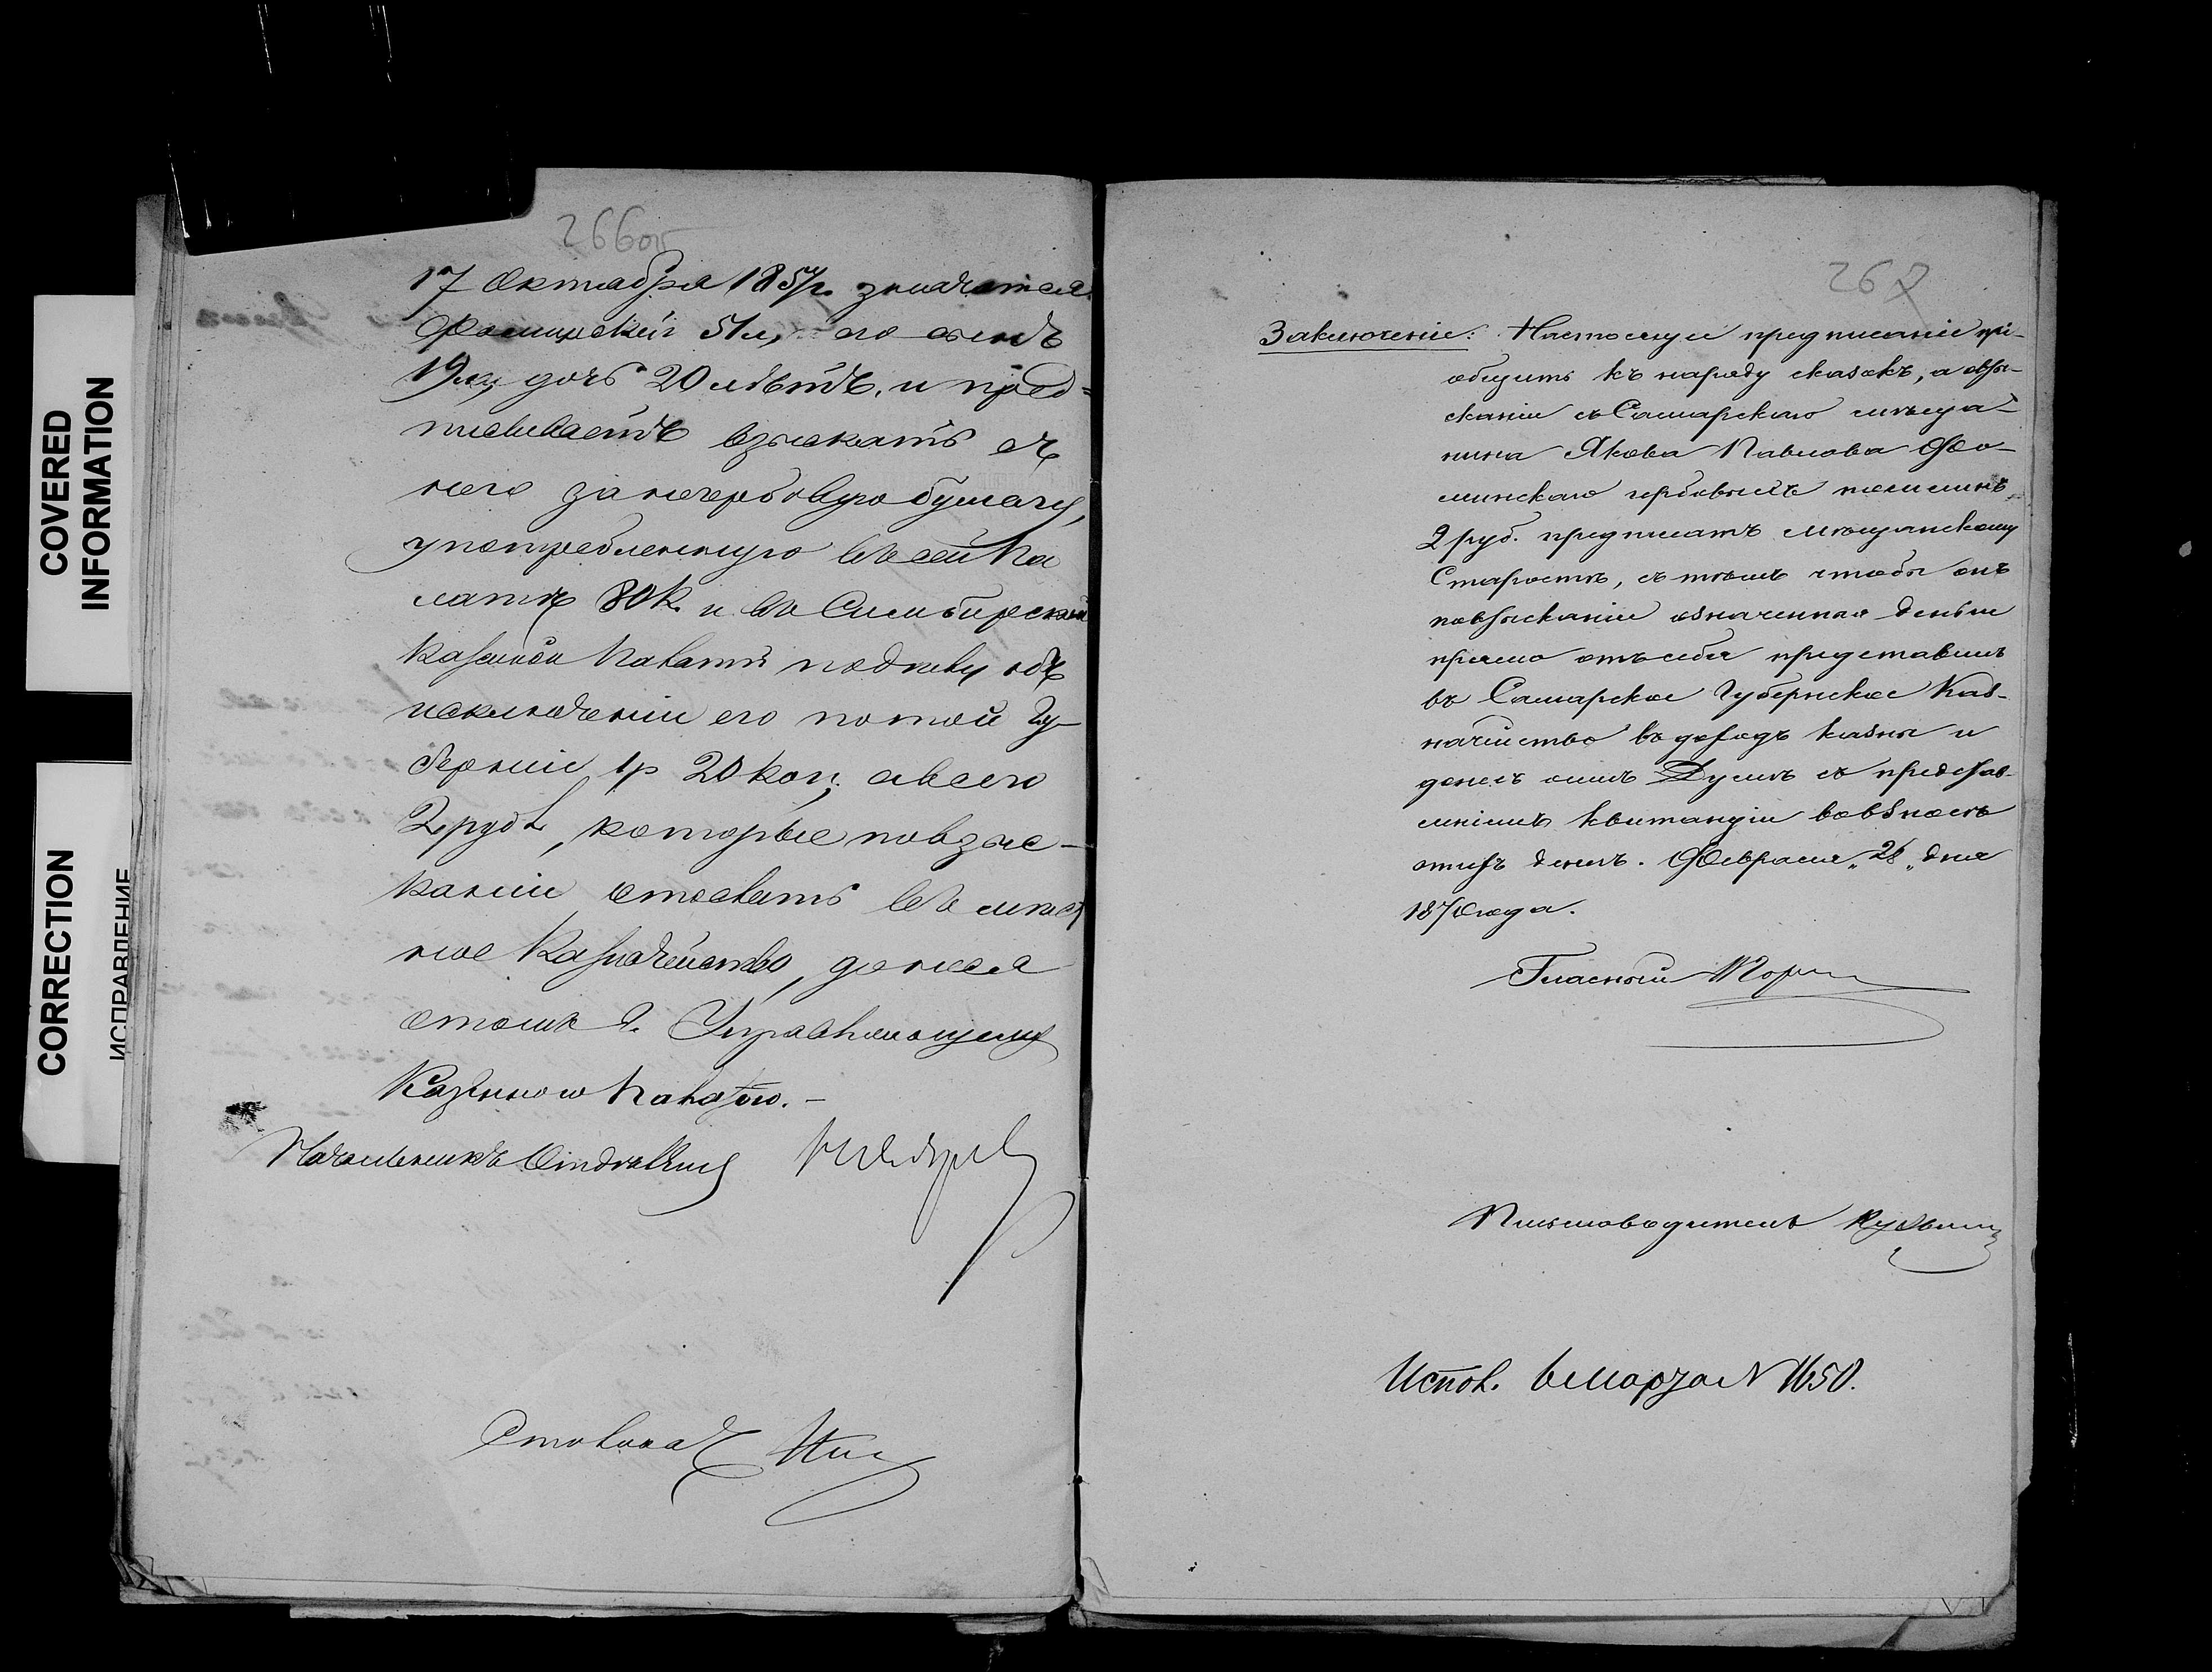 COVERED
INFORMATION
CORRECTION
ИСПРАВЛЕНИЕ
266об
17 Октября 1857г. значатся
Фоминскій 51 л, его сынъ
19 л, дочь 20 лѣтъ, и пред=
писываетъ взыскать съ
него за негербовую бумагу,
употребленную въ сей Па
латѣ 80 к. и въ Симбирской
Казенной Палатѣ по дѣлу объ
исключеніи его по той Гу-
берніи 1 р 20 коп, а всего
2 руб, которые по взыс-
каніи отослать въ мѣст
ное Казначейство, донеся
о томъ Г. Управляющему
Казенною Палатою. -
Начальникъ Отдѣленія
Столонач
267
Заключеніе: Настоящее предписаніе прі-
общить къ наряду сказокъ, а о взы-
сканіи съ Самарскаго мѣща-
нина Якова Павлова Фо-
минскаго гербовыхъ пошлинъ
2 руб. предписать мѣщанскому
Старостѣ, съ тѣмъ чтобы онъ
по взысканіи означенныя деньги
прямо отъ себя представилъ
въ Самарское Губернское Каз-
начейство въ доходъ казны и
донесъ о семъ Думѣ съ представ-
леніемъ квитанціи во взносѣ
этихъ денегъ. Февраля „28„ дня
1870 года.
Гласный
Письмоводитель
Испол. 6 Марта N 1650.